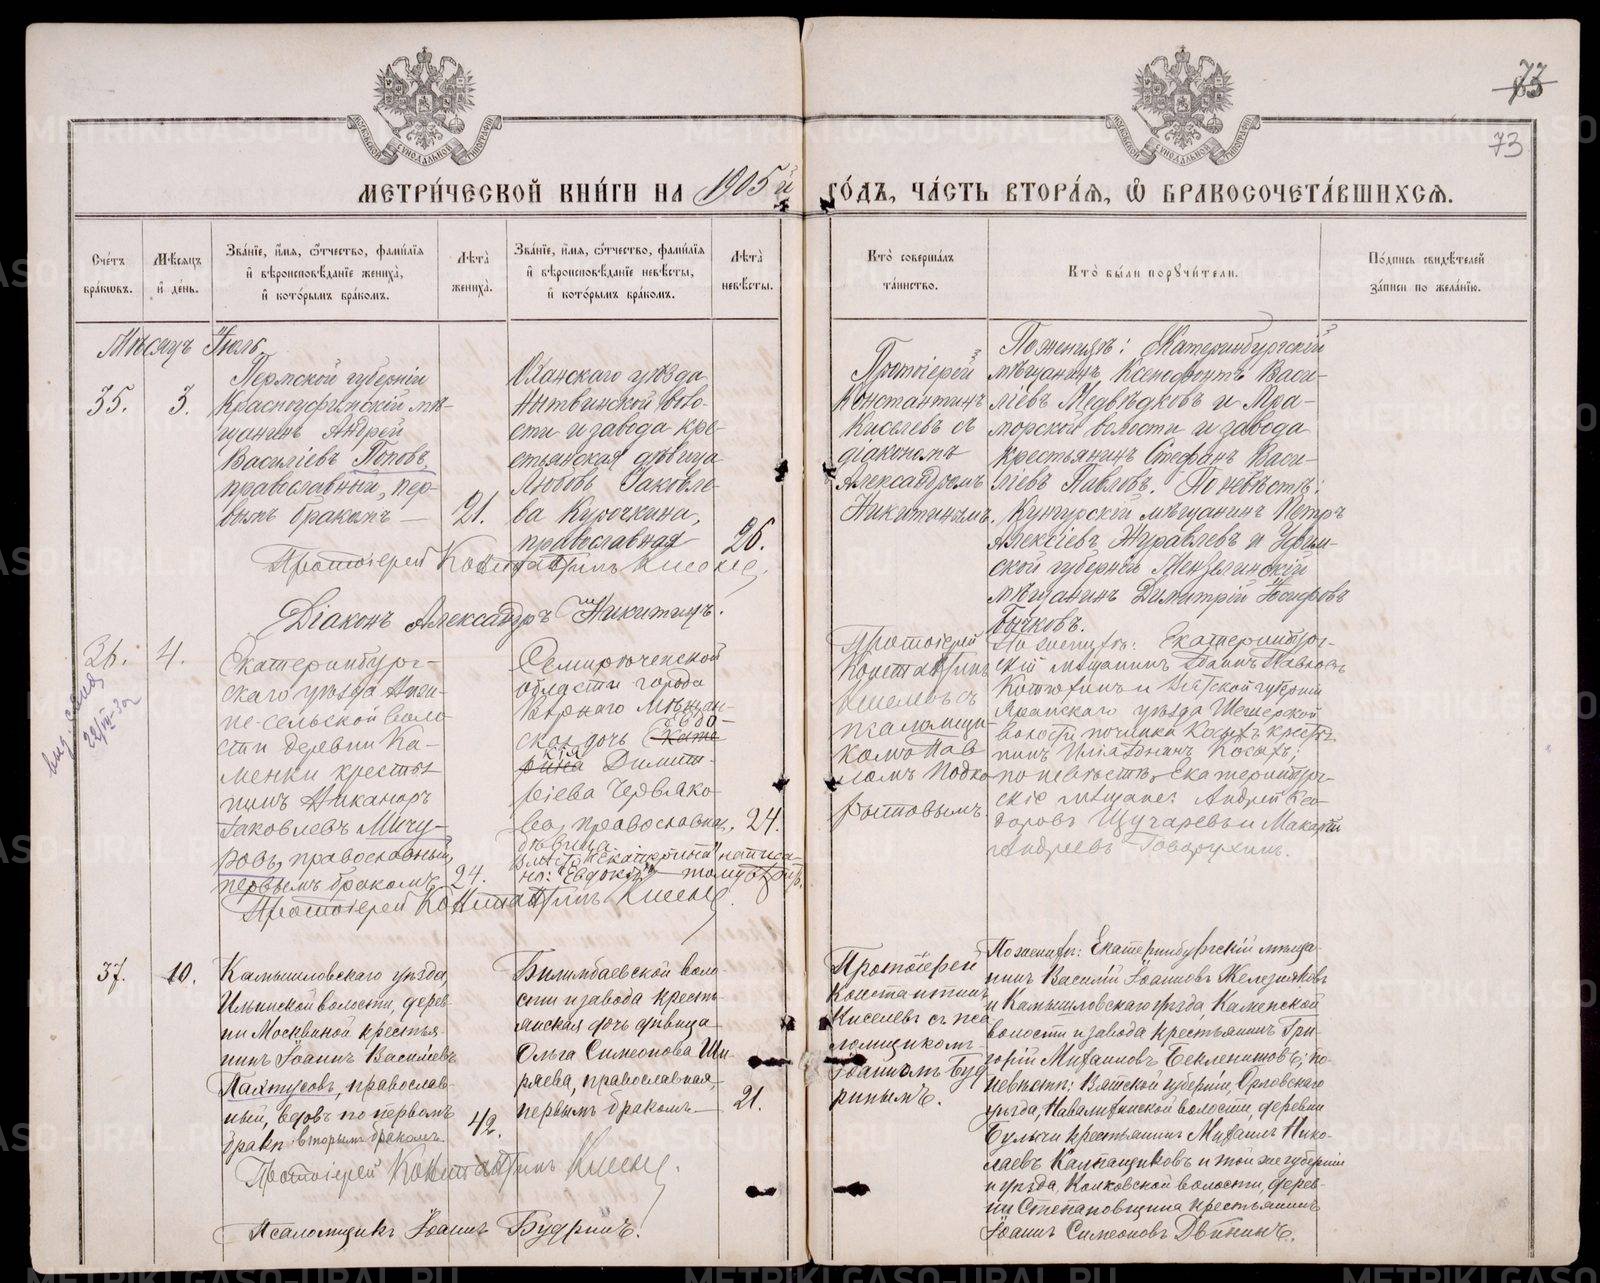 73
73
МЕТРИ́ЧЕСКОЙ КНИ́ГИ НА 1905й ГО́ДЪ, ЧА́СТЬ ВТОРА́Я, Ѡ БРАКОСОЧЕТА́ВШИХСЯ.
Сче́тъ бра́ковъ.
Мѣ́сяцъ и҆ де́нь.
Зва́нїе, и҆́мя, ѻ҆́тчество, фами́лїя и҆ вѣроисповѣ́данїе жениха̀, и҆ кото́рымъ бра́комъ.
Лѣ́та жениха̀.
Зва́нїе, и҆́мя, ѻ҆́тчество, фами́лїя и҆ вѣроисповѣ́данїе невѣ́сты, и҆ кото́рымъ бра́комъ.
Лѣ́та невѣ́сты.
Кто̀ соверша́лъ та́инство.
Кто̀ бы́ли поручи́тели.
По́дпись свидѣ́телей за́писи по жела́нїю.
Мѣсяцъ Іюль.
35.
3.
Пермской губерніи
Красноуфимскій мѣ-
щанинъ Андрей
Василіевъ Поповъ
православный, пер-
вымъ бракомъ
21.
Оханскаго уѣзда
Нытвинской воло-
сти и завода кре-
стьянская дѣвица
Любовь Іаковле-
ва Курочкина,
православная
26.
Протоіерей
Константинъ
Киселевъ съ
діакономъ
Александромъ
Никитинымъ.
По женихѣ: Екатеринбургскій
мѣщанинъ Ксенофонтъ Васи-
ліевъ Медвѣдковъ и Мра-
морской волости и завода
крестьянинъ Стефанъ Васи-
ліевъ Павловъ. По невѣстѣ:
Кунгурскій мѣщанинъ Петръ
Алексіевъ Журавлевъ и Уфим-
ской губерніи Мензелинскій
мѣщанинъ Димитрій Іосифовъ
Бычковъ.
Протоіерей Константинъ Киселевъ.
Діаконъ Александръ Никитинъ.
36.
4.
Екатеринбург-
скаго уѣзда
не-сельской воло-
сти деревни Ка-
менки крестья
нинъ Никаноръ
Іаковлевъ Мичу-
ровъ, православный,
первымъ бракомъ
24.
Семирѣченской
области города
Вѣрнаго мѣщан-
ская дочь Евдо-
кія Димит-
ріева Червяко-
ва, православная,
дѣвица
24.
вмѣсто "Екатерина" написа-
но: "Евдокія"
Протоіерей
Константинъ
Киселевъ съ
псаломщи-
комъ Пав
ломъ Подко
рытовымъ.
По женихѣ: Екатеринбург-
скій мѣщанинъ Іоаннъ Павловъ
и Вятской губерніи
уѣзда
волости починка
нинъ
по невѣстѣ: Екатеринбург-
скіе мѣщане: Андрей
и Макарій
Андреевъ
Протоіерей Константинъ Киселевъ.
37.
10.
Камышловскаго уѣзда,
Ильинской волости, дерев-
ни Москвиной крестья
нинъ Іоаннъ Василіевъ
Пахтусовъ, православ-
ный, вдовъ по первомъ
бракѣ вторымъ бракомъ
42.
Билимбаевской воло
сти и завода кресть
янская дочь дѣвица
Ольга Симеонова Ши
ряева, православная,
первымъ бракомъ
21.
Протоіерей
Константинъ
Киселевъ съ пса
ломщикомъ
Іоанномъ Буд
ринымъ.
По женихѣ: Екатеринбургскій мѣща-
нинъ Василій Іоанновъ Железняковъ
и Камышловскаго уѣзда, Каменской
волости и завода крестьянинъ Гри-
горій Михаиловъ Бекленитовъ; по-
невѣстѣ: Вятской губерніи, Орловскаго
уѣзда, волости, деревни
крестьянинъ Михаилъ Нико-
лаевъ Калпащиковъ и той же губерніи
и уѣзда, волости, дерев-
ни Степановщина крестьянинъ
Іоаннъ Симеоновъ Двининъ.
Протоіерей Константинъ Киселевъ.
Псаломщикъ Іоаннъ Будринъ.
METRIKI.GASO-URAL.RU